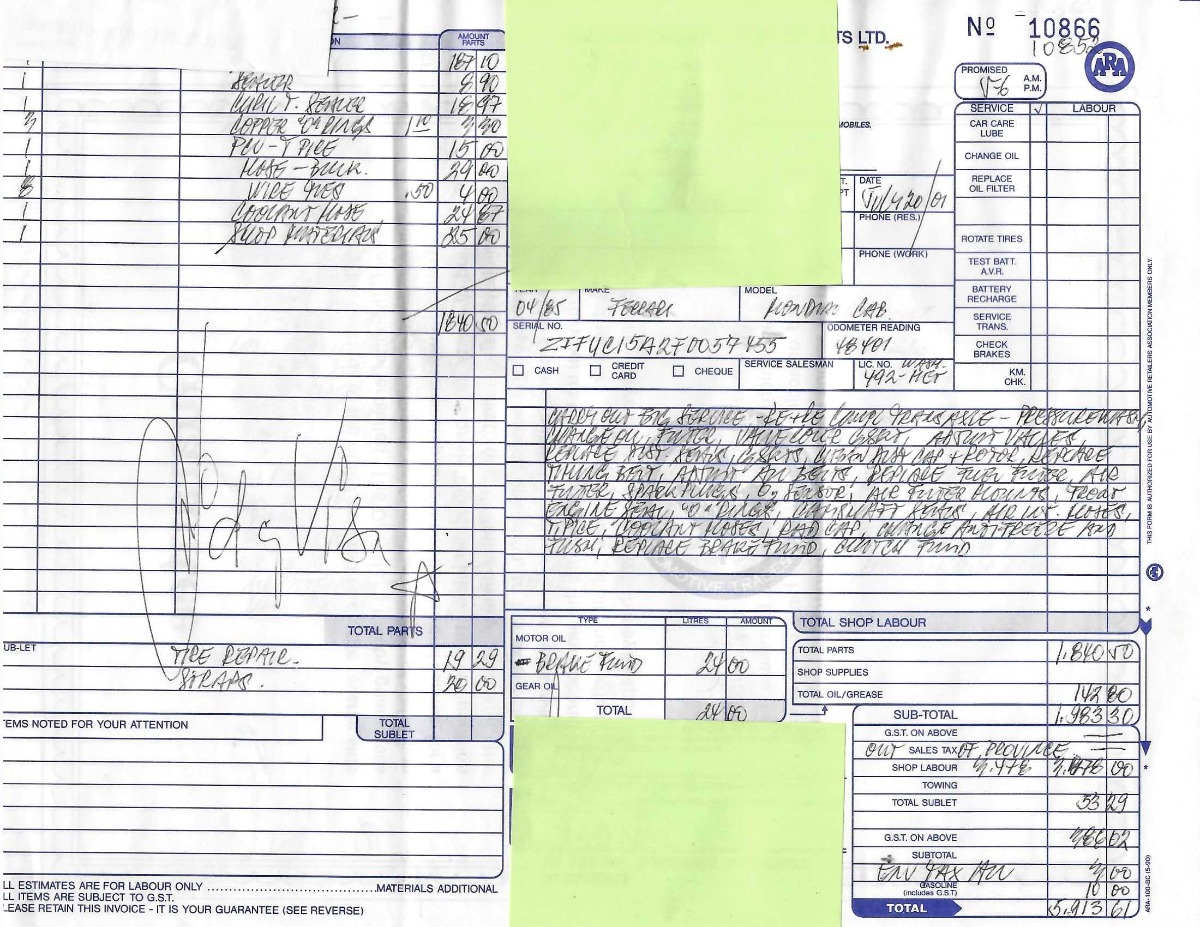 TS LTD.
Nº 10866
ARA
PROMISED
A.M.
P.M.
AMOUNT
PARTS
187 10
1 SENSOR 8 90
1 18 97
3 COPPER "O" RINGS 1 10 3 30
1 15 00
1 HOSE - 29 00
8 WIRE TIES .50 4 00
1 COOLANT HOSE 24 67
1 SHOP MATERIALS 25 00
1840.50
MOBILES.
DATE
20/01
PHONE (RES.)
PHONE (WORK)
SERVICE √ LABOUR
CAR CARE
LUBE
CHANGE OIL
REPLACE
OIL FILTER
ROTATE TIRES
TEST BATT.
A.V.R.
BATTERY
RECHARGE
SERVICE
TRANS.
CHECK
BRAKES
KM.
CHK.
YEAR MAKE MODEL
04/85 FERRARI MONDIAL CAB.
SERIAL NO. ODOMETER READING
ZFFUC15A2F0057455 48401
CASH CREDIT
CARD CHEQUE SERVICE SALESMAN LIC. NO. WASH.
492-HET
CARRY OUT BIG SERVICE - RE + RE TRANSAXLE - PRESSURE WASH,
CHANGE OIL, FILTER, VALVE COVER GSKTS, ADJUST VALVES,
REPLACE DIST. SEALS, GSKTS, DIST CAP + ROTOR, REPLACE
TIMING BELT, ADJUST ALL BELTS, REPLACE FUEL FILTER, AIR
FILTER, SPARK PLUGS, O2 SENSOR, AIR FILTER MOUNTS, FRONT
ENGINE SEAL, "O" RINGS, CAMSHAFT SEALS, AIR INT. HOSES,
T PIECE, COOLANT HOSES, RAD CAP, CHANGE ANTI-FREEZE AND
FLUSH, REPLACE BRAKE FLUID, CLUTCH FLUID
TOTAL PARTS
SUB-LET
TIRE REPAIR. 19 29
STRAPS. 20 00
ITEMS NOTED FOR YOUR ATTENTION
TOTAL
SUBLET
TYPE LITRES AMOUNT
MOTOR OIL
BRAKE FLUID 24 00
GEAR OIL
TOTAL 24 00
TOTAL SHOP LABOUR
TOTAL PARTS 1,840 50
SHOP SUPPLIES
TOTAL OIL/GREASE 142 80
SUB-TOTAL 1,983 30
G.S.T. ON ABOVE
OUT SALES TAX OF PROVINCE
SHOP LABOUR 3,478 3,478 00
TOWING
TOTAL SUBLET 53 29
G.S.T. ON ABOVE 386 02
SUBTOTAL
ENV TAX 3 00
GASOLINE
(includes G.S.T.) 10 00
TOTAL 5,913 61
ALL ESTIMATES ARE FOR LABOUR ONLY ........................MATERIALS ADDITIONAL
ALL ITEMS ARE SUBJECT TO G.S.T.
PLEASE RETAIN THIS INVOICE - IT IS YOUR GUARANTEE (SEE REVERSE)
THIS FORM IS AUTHORIZED FOR USE BY AUTOMOTIVE RETAILERS ASSOCIATION MEMBERS ONLY.
ARA-100-SC (5-00)